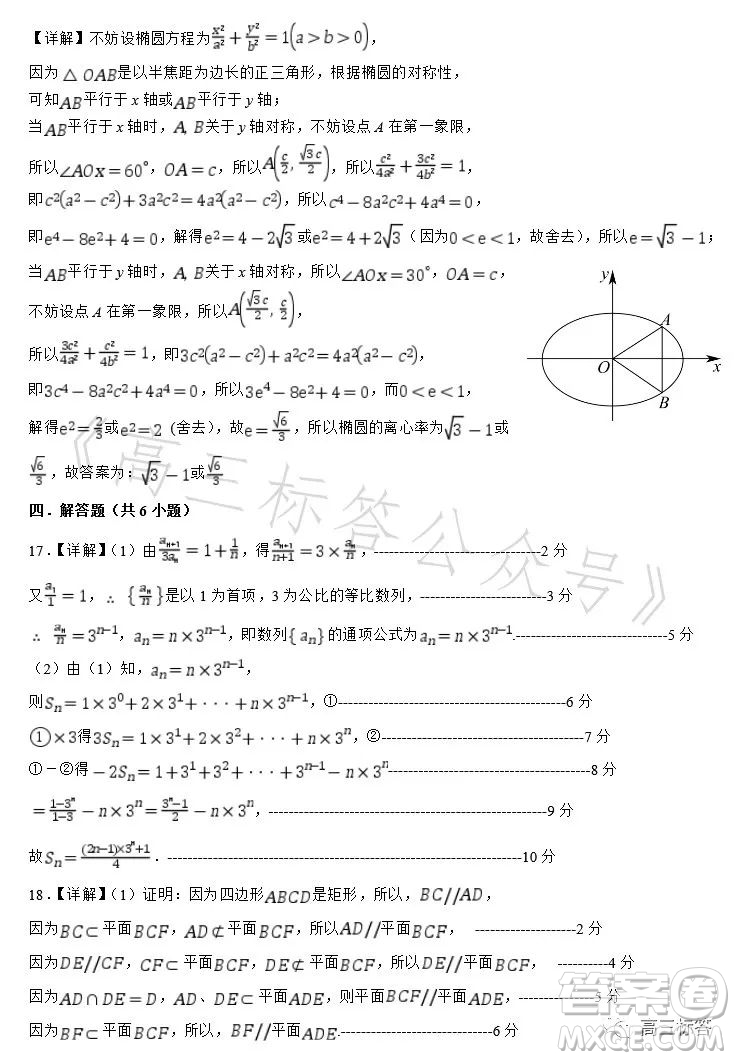 【详解】不妨设椭圆方程为x²/a²+y²/b²=1(a>b>0)，
因为△OAB是以半焦距为边长的正三角形，根据椭圆的对称性，
可知AB平行于x轴或AB平行于y轴；
当AB平行于x轴时，A, B关于y轴对称，不妨设点A在第一象限，
所以∠AOx=60°，OA=c，所以A(c/2, √3c/2)，所以c²/4a²+3c²/4b²=1，
即c²(a²−c²)+3a²c²=4a²(a²−c²)，所以c⁴−8a²c²+4a⁴=0，
即e⁴−8e²+4=0，解得e²=4−2√3或e²=4+2√3（因为0<e<1，故舍去），所以e=√3−1；
当AB平行于y轴时，A, B关于x轴对称，所以∠AOx=30°，OA=c，
不妨设点A在第一象限，所以A(√3c/2, c/2)，
所以3c²/4a²+c²/4b²=1，即3c²(a²−c²)+a²c²=4a²(a²−c²)，
即3c⁴−8a²c²+4a⁴=0，所以3e⁴−8e²+4=0，而0<e<1，
解得e²=2/3或e²=2 (舍去)，故e=√6/3，所以椭圆的离心率为√3−1或
√6/3，故答案为：√3−1或√6/3
y
A
O
x
B
四．解答题（共6小题）
17．【详解】（1）由aₙ₊₁/3aₙ=1+1/n，得aₙ₊₁/n+1=3×aₙ/n，---------------------------2分
又a₁/1=1，∴{aₙ/n}是以1为首项，3为公比的等比数列，-------------------------3分
∴ aₙ/n=3ⁿ⁻¹，aₙ=n×3ⁿ⁻¹，即数列{aₙ}的通项公式为aₙ=n×3ⁿ⁻¹.------------------------------5分
（2）由（1）知，aₙ=n×3ⁿ⁻¹，
则Sₙ=1×3⁰+2×3¹+···+n×3ⁿ⁻¹，①---------------------------------------------6分
①×3得3Sₙ=1×3¹+2×3²+···+n×3ⁿ，②----------------------------------------7分
①−②得−2Sₙ=1+3¹+3²+···+3ⁿ⁻¹−n×3ⁿ----------------------------------------8分
=1−3ⁿ/1−3−n×3ⁿ=3ⁿ−1/2−n×3ⁿ，-------------------------------------------------------9分
故Sₙ=(2n−1)×3ⁿ+1/4．----------------------------------------------------------------------10分
18．【详解】（1）证明：因为四边形ABCD是矩形，所以，BC//AD，
因为BC⊂平面BCF，AD⊄平面BCF，所以AD//平面BCF， --------------------2分
因为DE//CF，CF⊂平面BCF，DE⊄平面BCF，所以DE//平面BCF， ----------4分
因为AD∩DE=D，AD、DE⊂平面ADE，则平面BCF//平面ADE，---------------5分
因为BF⊂平面BCF，所以，BF//平面ADE.------------------------------6分
《高三标答公众号》
答案卷
MXQE.COM
高三标答